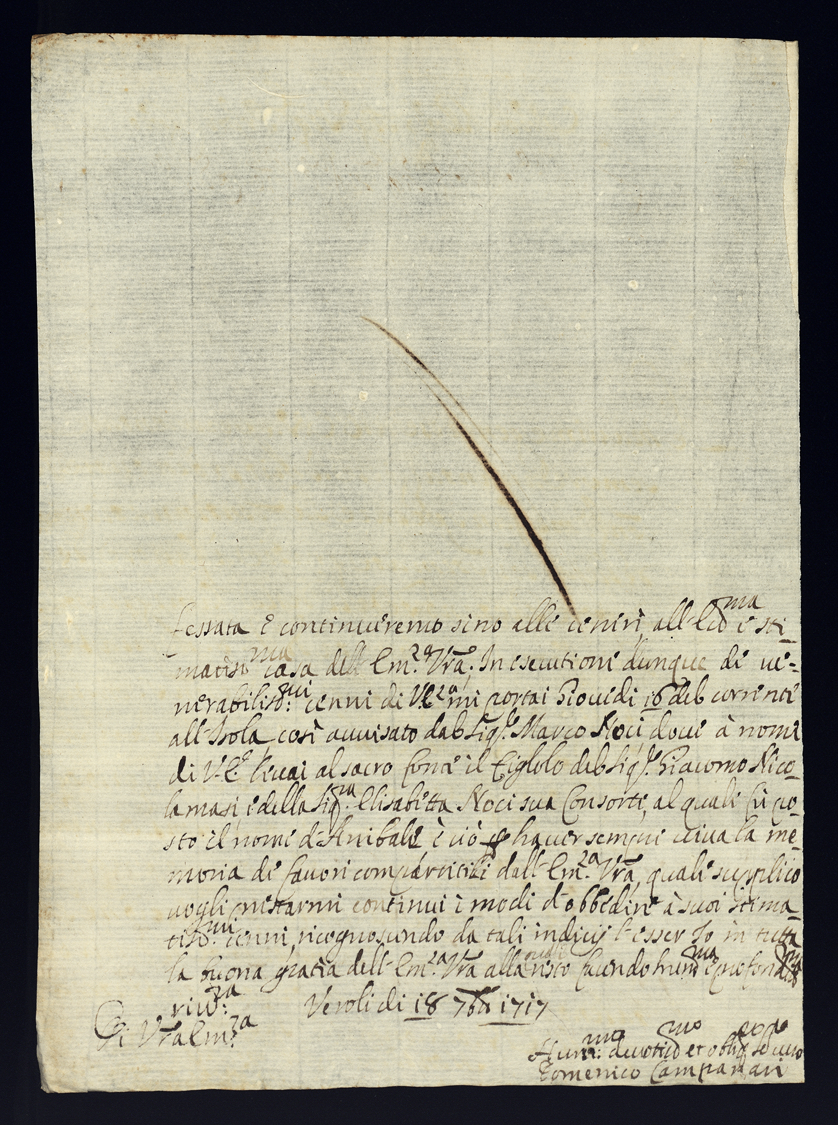 cessata e continueremo sino alle ceneri all' Ecc.ma e sti-
matis.ma Casa dell' Em.za Vra. In esecutione dunque di ue-
nerabiliss.mi cenni di V.E.za mi portai Giouedi 16 del corrente
all' Isola, così auuisato dal Sig.re Marco Noci doue à nome
di V. E. leuai al sacro fonte il figlolo del Sig.re Giacomo Nico-
lamasi e della Sig.ra Elisabetta Noci sua Consorte, al quale fù po-
sto il nome d'Anibale e ciò p hauer sempre uiua la me-
moria de fauori compartitili dall' Em.za Vra, quale supplico
uogli prestarmi continui i modi d'obbedire à suoi stima-
tiss.mi cenni, ricognoscendo da tali indicij l'esser Io in tutta
la buona gratia dell' Em.za Vra alla facendo hum.ma e profond.ma
riu.za Veroli di 18 7bre 1717
Di Vra Em.za
Hum.mo deuot.mo et oblig.mo
Domenico Campanari